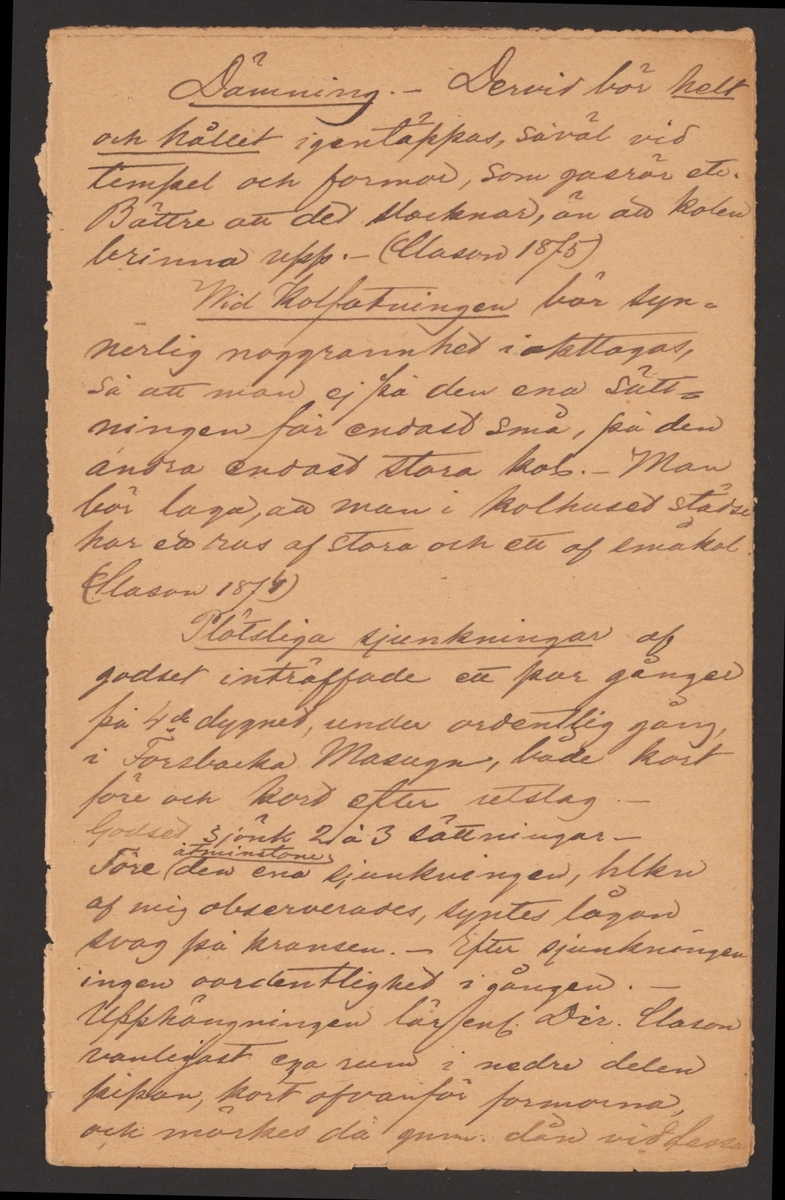 Dämning. – Dervid bör helt
och hållet igentäppas, såväl vid
timpel och formor, som gasrör etc.
Bättre att det slocknar, än att kolen
brinna upp. – (Clason 1875)
Vid Kolfatningen bör syn=
nerlig noggrannhet iakttagas,
så att man ej på den ena sätt=
ningen får endast små, på den
andra endast stora kol. – Man
bör laga, att man i kolhuset städse
har ett ras af stora och ett af småkol
(Clason 187)
Plötsliga sjunkningar af
godset inträffade ett par gånger
på 4de dygnet, under ordentlig gång,
i Forsbacka Masugn, både kort
före och kort efter utslag –
Godset sjönk 2 à 3 sättningar –
åtminstone
Före den ena sjunkningen, hlkn
af mig observerades, syntes lågan
svag på kransen. – Efter sjunkningen
ingen oordentlighet i gången. –
Upphängningen lär enl. Dir. Clason
vanligast ega rum i nedre delen
pipan, kort ofvanför formorna,
och märkes då gnm. dån vid